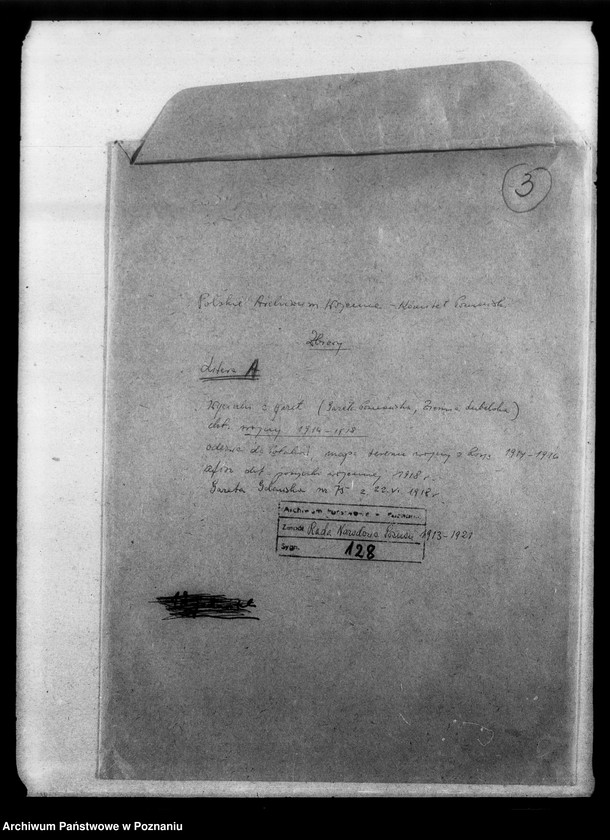 3
Polskie Archiwum Wojenne - Komitet
Zbiory
Litera A
Wycinki z gazet (Gazeta, Ziemia Lubelska)
dot. wojny 1914-1918
odezwa do, mapa terenu wojny z kor. 1914-1916
Afisz dot. pożyczki wojennej 1918 r.
Gazeta Gdańska nr 75 z 22.VI. 1918 r
Archiwum Państwowe w Poznaniu
Rada Narodowa 1913-1921
Sygn. 128
Archiwum Państwowe w Poznaniu